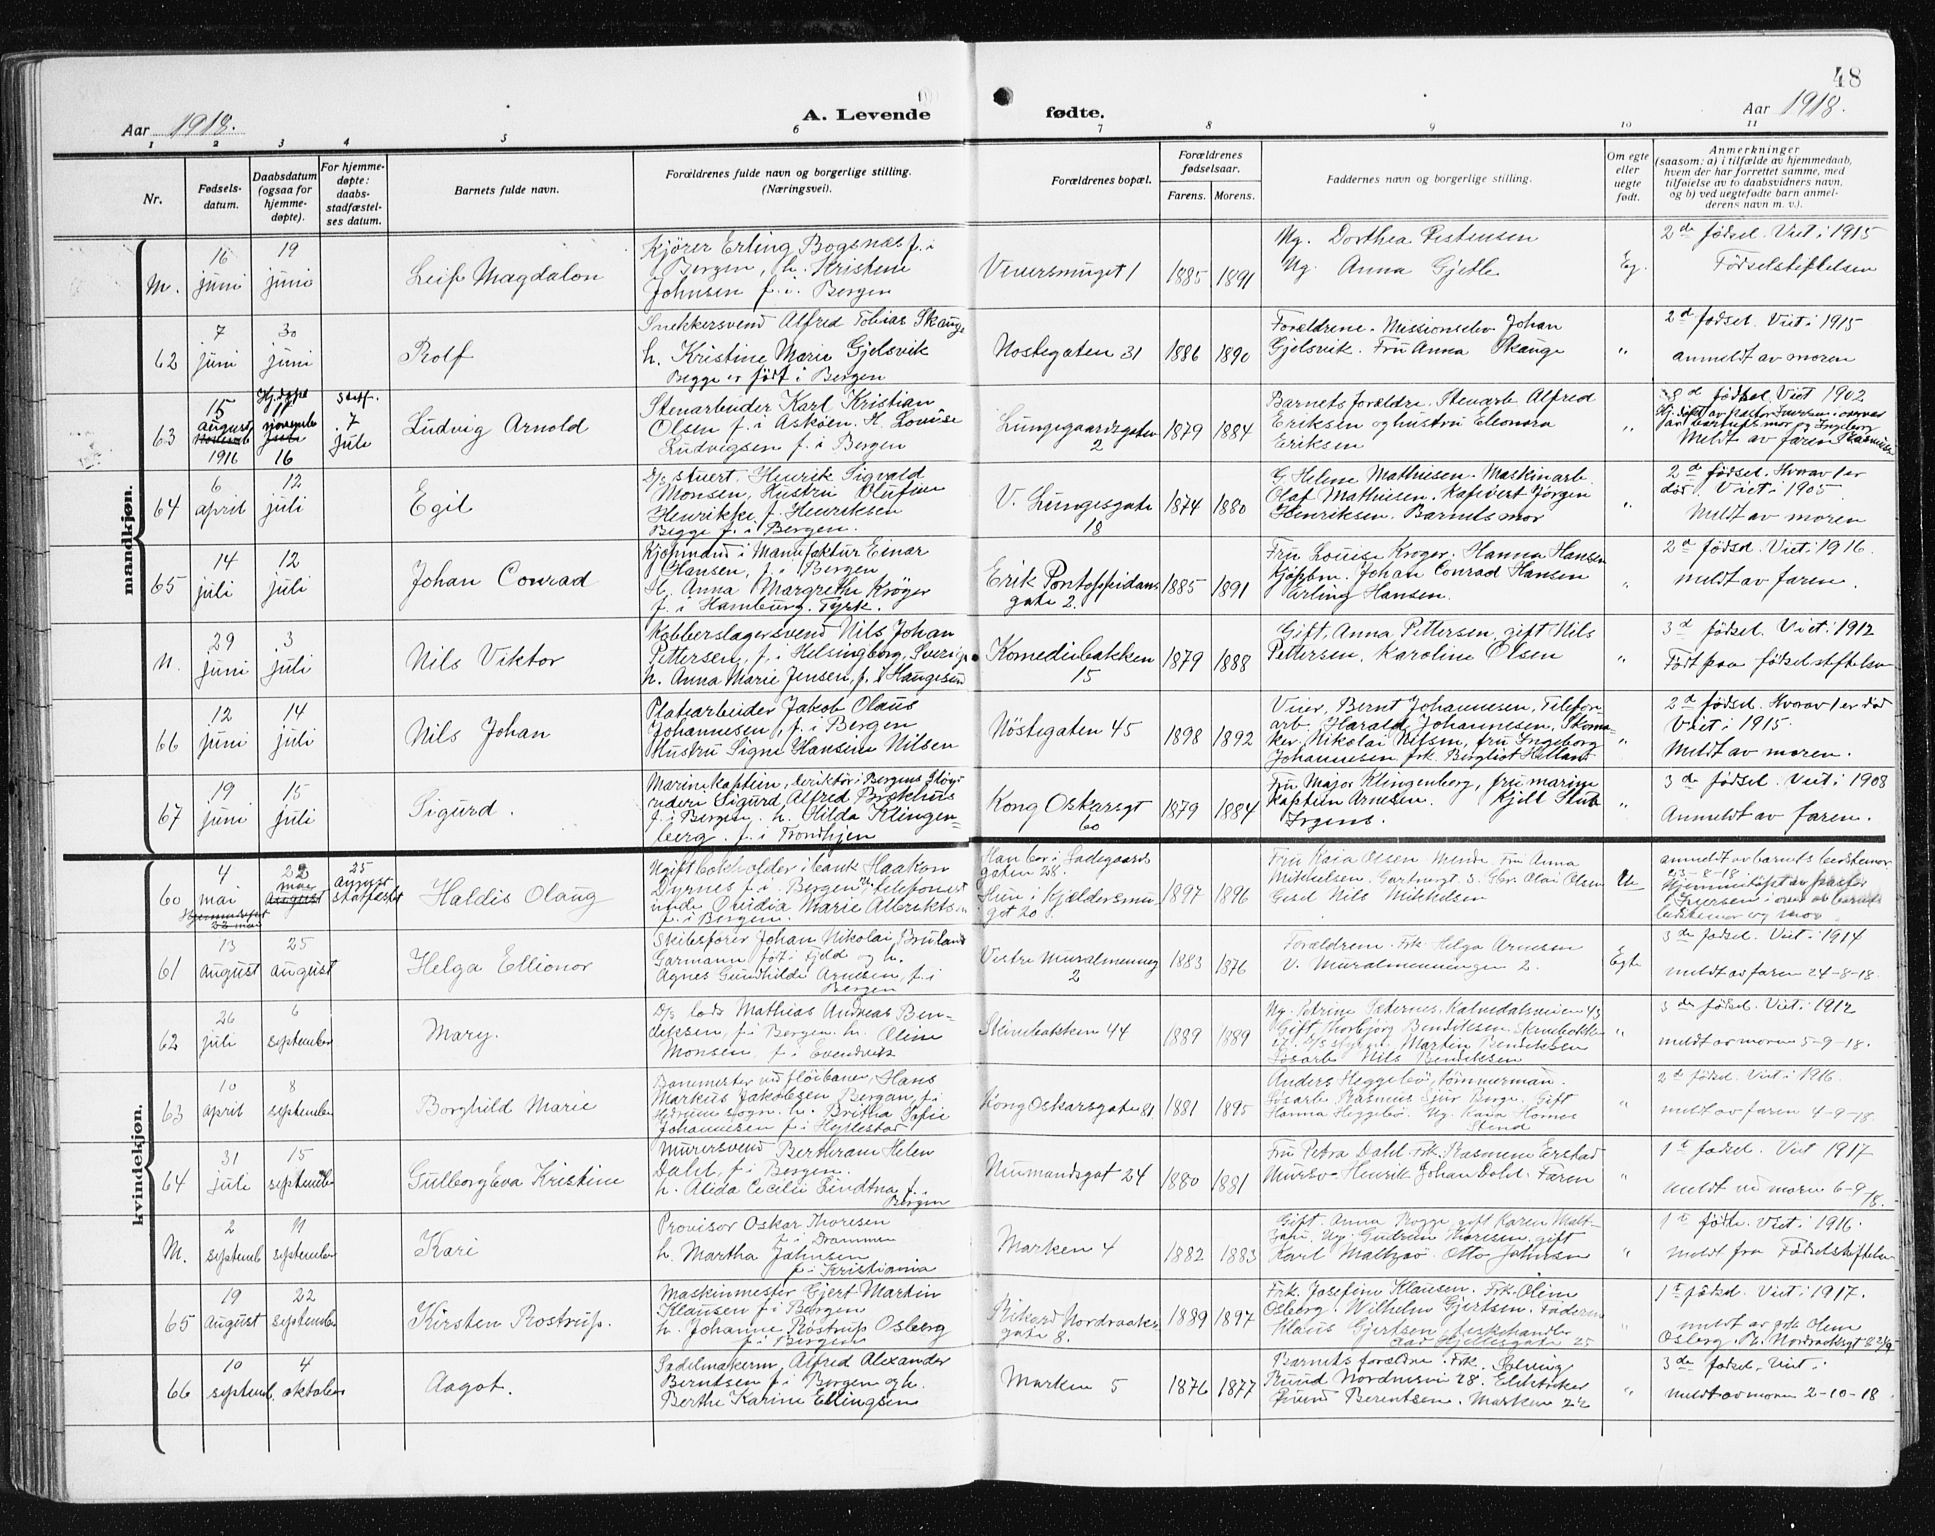 48
Aar 1918.
A. Levende
fødte.
Aar 1918.
1 2 3 4 5 6 7 8 9 10 11
Nr.
Fødsels-
datum.
Daabsdatum
(ogsaa for
hjemme-
døpte).
For hjemme-
døpte:
daabs-
stadfæstel-
ses datum.
Barnets fulde navn.
Forældrenes fulde navn og borgerlige stilling.
(Næringsvei).
Forældrenes bopæl.
Forældrenes
fødselsaar.
Farens. Morens.
Faddernes navn og borgerlig stilling.
Om egte
eller
uegte
født.
Anmerkninger
(saasom: a) i tilfælde av hjemmedaab,
hvem der har forrettet samme, med
tilføielse av to daabsvidners navn,
og b) ved uegtefødte barn anmel-
derens navn m. v.).
mandkjøn.
M.
16
juni
19
juni
Leif Magdalon
Kjører Erling Bogsnes f. i
Bergen, h. Kristene
Johnsen f. i. Bergen
1885 1891
Ug. Dorthea Pestensen
Ug. Anna Gjetle
Eg.
2de fødsel. Viet i 1915
Fødselstiftelsen
62
7
juni
30
juni
Rolf
Snekkersvend Alfred Tobias Skauge
h. Kristine Marie Gjelsvik
Begge er født i Bergen
Nøstegaten 31
1886 1890
Forældrene. Missionselev Johan
Gjelsvik. Fru Anna Skauge
"
2d fødsel. Viet i 1915
anmeldt av moren
63
15
august
1916
Hj. døpt
11
november
16
Stadf.
7
jule
Ludvig Arnold
Stenarbeider Karl Kristian
Olsen f. i Askøen. H. Louise
Ludvigsen f. i Bergen
Lungegaardsgaten
2
1879 1884
Barnets forældre. Stenarb Alfred
Eriksen og hustru Eleonora
Eriksen
"
8d fødsel Viet 1902
Hj. døpt av pastor Iversen, overvær
Meldt av faren
64
6
april
12
juli
Egil
D/s stuert. Henrik Sigvald
Monsen, Hustru Olufine
Henrikke f. Henriksen
Begge f. i Bergen.
V. Lungesgate
18
1874 1880
G Helene Mathiesen. Maskinarb.
Olaf Mathiesen. Kafevert Jörgen
Henriksen. Barnets mor
"
2d fødsel. Hvorav 1 er
død. Viet i 1905.
Meldt av moren
65
14
juli
12
juli
Johan Conrad
Kjøpmand i Manufaktur Einar
Hansen, f. i Bergen
H. Anna Margrethe Krøger
f. i Hamburg. Tysk.
Erik Pontoppidans
gate 2.
1885 1891
Fru Louise Krøger. Hanna Hansen
Kjøpm. Johan Conrad Hansen
Erling Hansen.
"
2d fødsel. Viet: 1916.
meldt av faren.
N.
29
juni
3
juli
Nils Viktor
Kobberslagersvend Nils Johan
Pettersen, f. i Helsingborg, Sverige
h. Anna Marie Jensen, f. i Haugesund
Komediebakken
15
1879 1888
Gift. Anna Pettersen, gift Nils
Pettersen, Karoline Olsen
"
3d fødsel. Viet: 1912
Født paa fødselstiftelsen
66
12
juni
14
juli
Nils Johan
Platearbeider Jakob Olaus
Johannesen, f. i Bergen
Hustru Signe Hansene Nilsen
Nöstegaten 45
1898 1892
Vier, Bernt Johannesen, Telefon-
arb. Harald Johannesen, Skoma-
ker Nikolai Nilsen, fru Ingeborg
Johannesen, frk. Bergliot Helland
"
2d fødsel. Hvorav 1 er död
Viet i 1915.
Meldt av moren.
67
19
juni
15
juli
Sigurd.
Marinekaptein, direktör i Bergens Stöpe-
f. i Bergen. h. Hilda Klingen-
berg. f. i Trondhjem
Kong Oskarsgt
60
1879 1884
Fru Major Klingenberg, fru marine
Kaptein Arnesen. Kjell Stub
Irgens.
"
3de fødsel. Viet i 1908
Anmeldt av faren.
kvindekjøn.
60
4
mai
22
mai
25
August
stadfæstet
Haldis Olaug
Ugift bokholder i bank Haakon
Dyrnes f. i Bergen og telefonist
Ovidia Marie Albriktsen
f. i Bergen.
Han bor i Ladegaards
gaten 28.
Hun i Kjeldersmu-
get 20
1897 1896
Fru Kaia Olsen Minde Fru Anna
Mikkelsen. Olai Olsen
Gesel Nils Mikkelsen
Ue
anmeldt av barnets bedstemor
23-8-18. Hjemmedøpt av pastor
Iversen
bedstemor og mor
61
13
august
25
august
Helga Ellionor
Skibsfører Johan Nikolai Bruland
Garmann föt i Fjeld og h.
Agnes Gunhilde Arnesen, f. i
Bergen
Vestre Muralmenning
2
1883 1876
Foreldrene. Frk. Helga Arnesen
V. Muralmenningen 2.
Egte
3de fødsel. Viet i 1914
meldt av faren 24-8-18.
62
26
juli
6
september
Mary.
D/s lods Mathias Andreas Ben-
diksen, f. i Bergen. h. Oline
Monsen f. i Evenvik
Skivebakken 44
1889 1889
Gift, Thorbjörg Bendiksen. Skivebakken
Martin Bendiksen
Løsarb Nils Bendiksen
"
3de fødsel. Viet i 1912
meldt av moren 5-9-18.
63
10
april
8
september
Borghild Marie
Banemester ved flöibanen, Hans
Markus Jakobsen Bergan, f. i
h. Britha Sofie
Johannesen f. i Hyllestad
Kong Oskarsgate 81
1881 1895
Anders Heggebö, tömmermann.
Løsarb Rasmus Sjur Berge. Gift
Hanna Heggebö. Ug. Kaia Homes
Stend
"
2d fødsel. Viet i 1916.
meldt av faren 4-9-18.
64
31
juli
15
september
Gulborg Eva Kristine
Murersvend Berthram Helen
Dahl, f. i Bergen.
h. Alida Cecilie Findtna f. i
Bergen
Neumandsgat 24
1880 1881
Fru Petra Dahl. Frk. Rasmine Erstad
Mursv. Henrik Johan Dahl. Faren
"
1t fødsel. Viet 1917
meldt ved moren 6-9
18.
M.
2
septemb
11
september
Kari
Provisor Oskar Thoresen
f. i Drammen
h. Martha Johnsen
f. i Kristiania
Marken 4
1882 1883
Gift. Anna Rogge, gift Karen Malt-
zau. Ug. Gudrun Thoresen, gift
Karl Maltzau. Otto Johnsen
"
1te føds. Viet i 1916.
meldt fra Fødselstiftelsen
65
19
August
22
september
Kirsten Rostrup.
Maskinmester Gjert Martin
Klausen f. i Bergen
h. Johanne Rostrup Osberg
f. i Bergen
Rikard Nordraaks
gate 8.
1889 1897
Frk. Josefine Klausen. Frk. Oline
Osberg. Wilhelm Gjertsen. Faderen
Klaus Gjertsen, fiskehandler
"
1t fødsel. Viet i 1917.
meldt av frk Oline
Osberg. R. Nordraaksgt 8 21/9
66
10
septemb.
4
oktober
Aagot.
Sadelmakerm. Alfred Alexander
Berntsen f. i Bergen og h.
Berthe Karine Ellingsen
Marken 5
1876 1877
Barnets forældre. Frk. Solveig
Ruud Nordnesvei 28. Elektriker
Øivind Berentsen. Marken 22
"
3de fødsel. Viet i
meldt av moren 2-10-18